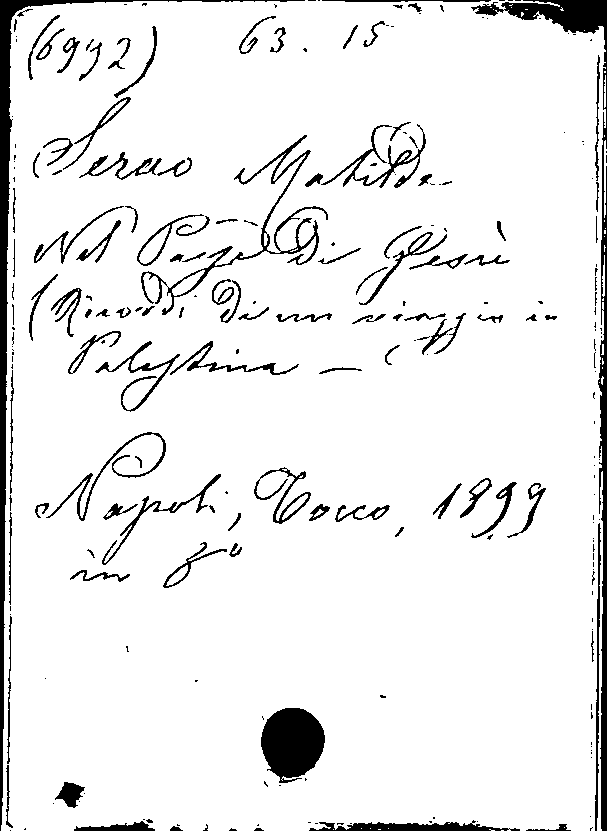 (6992) 63. 15
Serao Matilde
Nel Paese Di Gesù
(Ricordi di un viaggio in
Palestina — )
Napoli, Tocco, 1899
in 8°